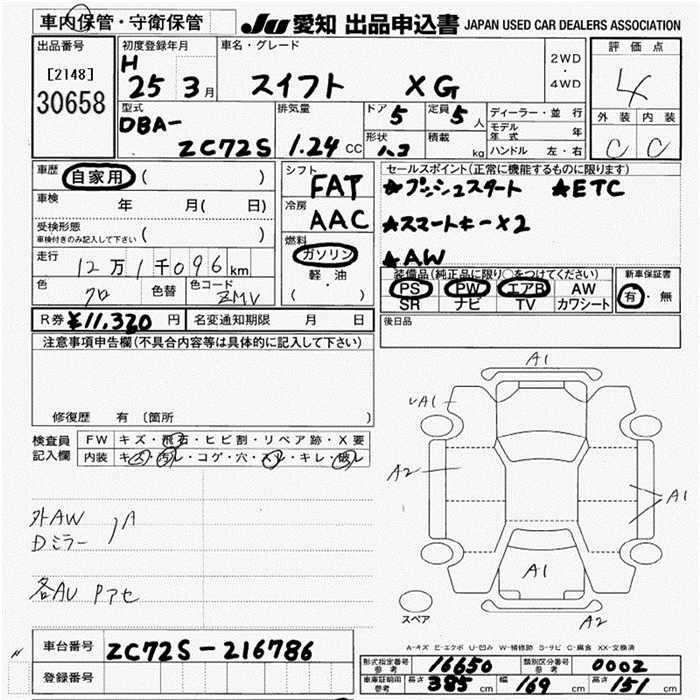 車内保管・守衛保管
JU 愛知 出品申込書 JAPAN USED CAR DEALERS ASSOCIATION
出品番号
[2148]
30658
初度登録年月
H 25 3月
車名・グレード
スイフト XG
2WD
・
4WD
評価点
4
外装 内装
C C
型式
DBA-
ZC72S
排気量
1.24 CC
ドア 5
定員 5 人
形状
積載 kg
ディーラー・並行
モデル年式 年
ハンドル 左・右
車歴 自家用 ( )
車検 年 月( 日)
受検形態
車検付きのみ記入して下さい ( )
走行 12万1千096km
色 クロ 色替 色コード ZMV
シフト
FAT
冷房
AAC
燃料
ガソリン
軽・油
( )
セールスポイント(正常に機能するものに限ります)
★プッシュスタート ★ETC
★スマートキー×2
★AW
装備品(純正品に限り○をつけてください)
PS PW エアB AW
SR ナビ TV カワシート
新車保証書
有・無
R券 ¥11,320 円 名変通知期限 月 日
後日品
注意事項申告欄(不具合内容等は具体的に記入して下さい)
修復歴 有 〔箇所 〕
検査員
記入欄
FW キズ・飛石・ヒビ割・リペア跡・X要
内装 キズ・汚レ・コゲ・穴・スレ・キレ・破レ
外AW
Dミラー
A
各AU Pアセ
A1
A1
A2
A1
A1
A2
スペア
A-キズ E-エクボ U-凹み W-補修跡 S-サビ C-腐食 XX-交換済
車台番号 ZC72S-216786
登録番号
形式指定番号 参考 16650 類別区分番号 参考 0002
車庫証明用 参考 長さ 385 cm 幅 169 cm 高さ 151 cm